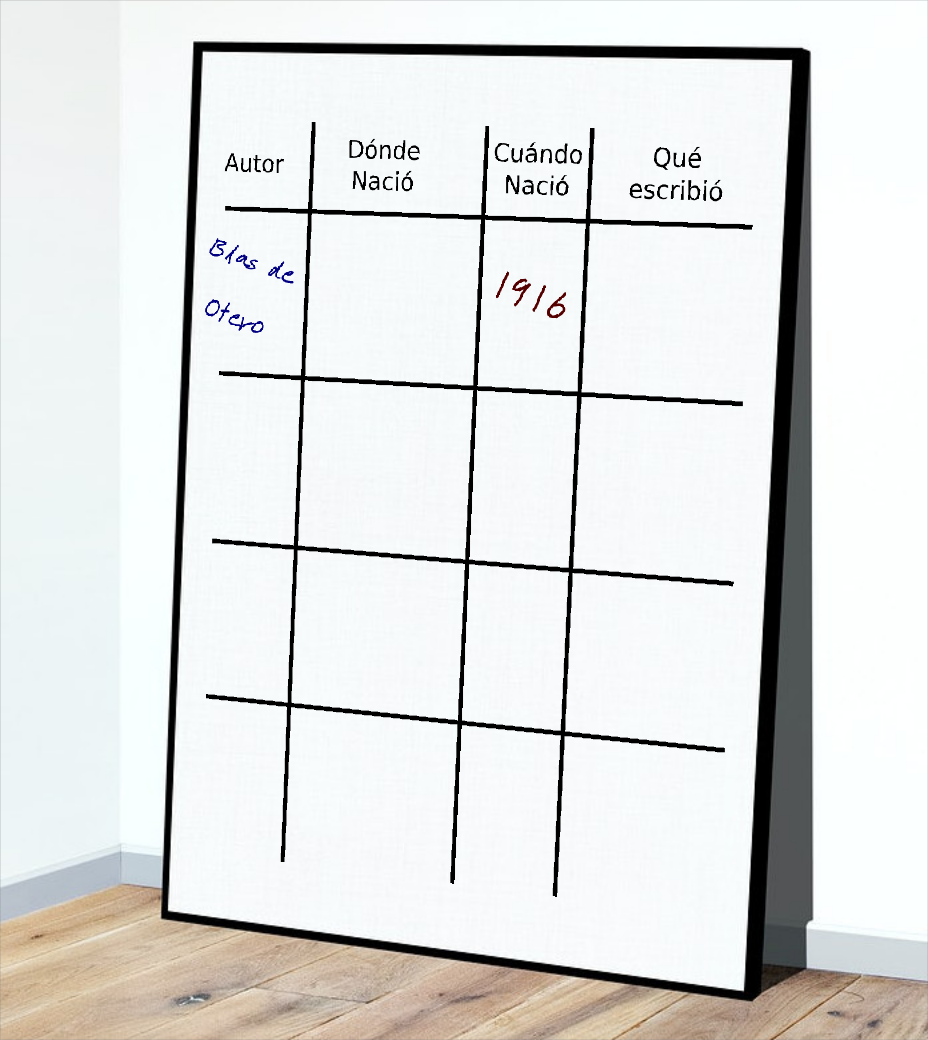 Autor
Dónde
Nació
Cuándo
Nació
Qué
escribió
Blas de
Otero
1916